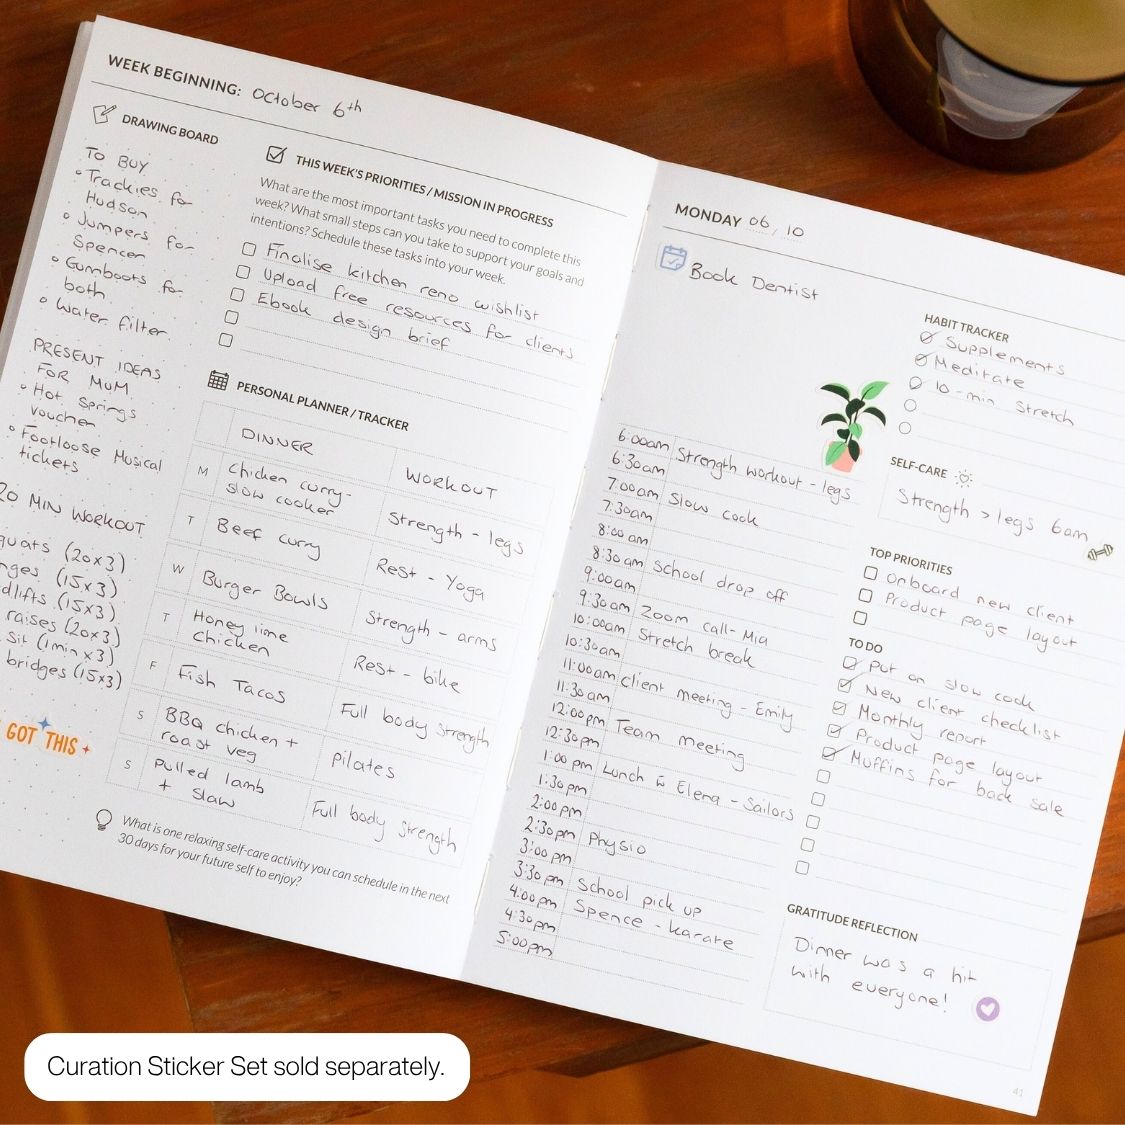 WEEK BEGINNING: October 6th
DRAWING BOARD
TO BUY
Trackies for
Hudson
Jumpers for
Spencer
Gumboots for
both
Water filter
PRESENT IDEAS
FOR MUM
Hot Springs
voucher
Footloose Musical
tickets
20 MIN WORKOUT
(20x3)
(15x3)
(15x3)
raises (20x3)
sit (1min x3)
bridges (15x3)
GOT THIS
THIS WEEK'S PRIORITIES / MISSION IN PROGRESS
What are the most important tasks you need to complete this
week? What small steps can you take to support your goals and
intentions? Schedule these tasks into your week.
Finalise kitchen reno wishlist
Upload free resources for clients
Ebook design brief
PERSONAL PLANNER / TRACKER
DINNER WORKOUT
M Chicken curry-
slow cooker
Strength - legs
T Beef curry Rest - Yoga
W Burger Bowls Strength - arms
T Honey lime
chicken
Rest - bike
F Fish Tacos Full body strength
S BBQ chicken +
roast veg
pilates
S pulled lamb
+ slaw
Full body strength
What is one relaxing self-care activity you can schedule in the next
30 days for your future self to enjoy?
MONDAY 06 / 10
Book Dentist
6:00am Strength workout - legs
6:30am
7:00am Slow cook
7:30am
8:00am
8:30am School drop off
9:00am
9:30am Zoom call- Mia
10:00am Stretch break
10:30am
11:00am client meeting - Emily
11:30am
12:00pm Team meeting
12:30pm
1:00pm Lunch w Elena - Sailors
1:30pm
2:00pm
2:30pm Physio
3:00pm
3:30pm School pick up
4:00pm Spence - karate
4:30pm
5:00pm
HABIT TRACKER
Supplements
Meditate
10-min stretch
SELF-CARE
Strength > legs 6am
TOP PRIORITIES
Onboard new client
Product page layout
TO DO
put on slow cook
New client checklist
Monthly report
Product page layout
Muffins for back sale
GRATITUDE REFLECTION
Dinner was a hit
with everyone!
41
Curation Sticker Set sold separately.